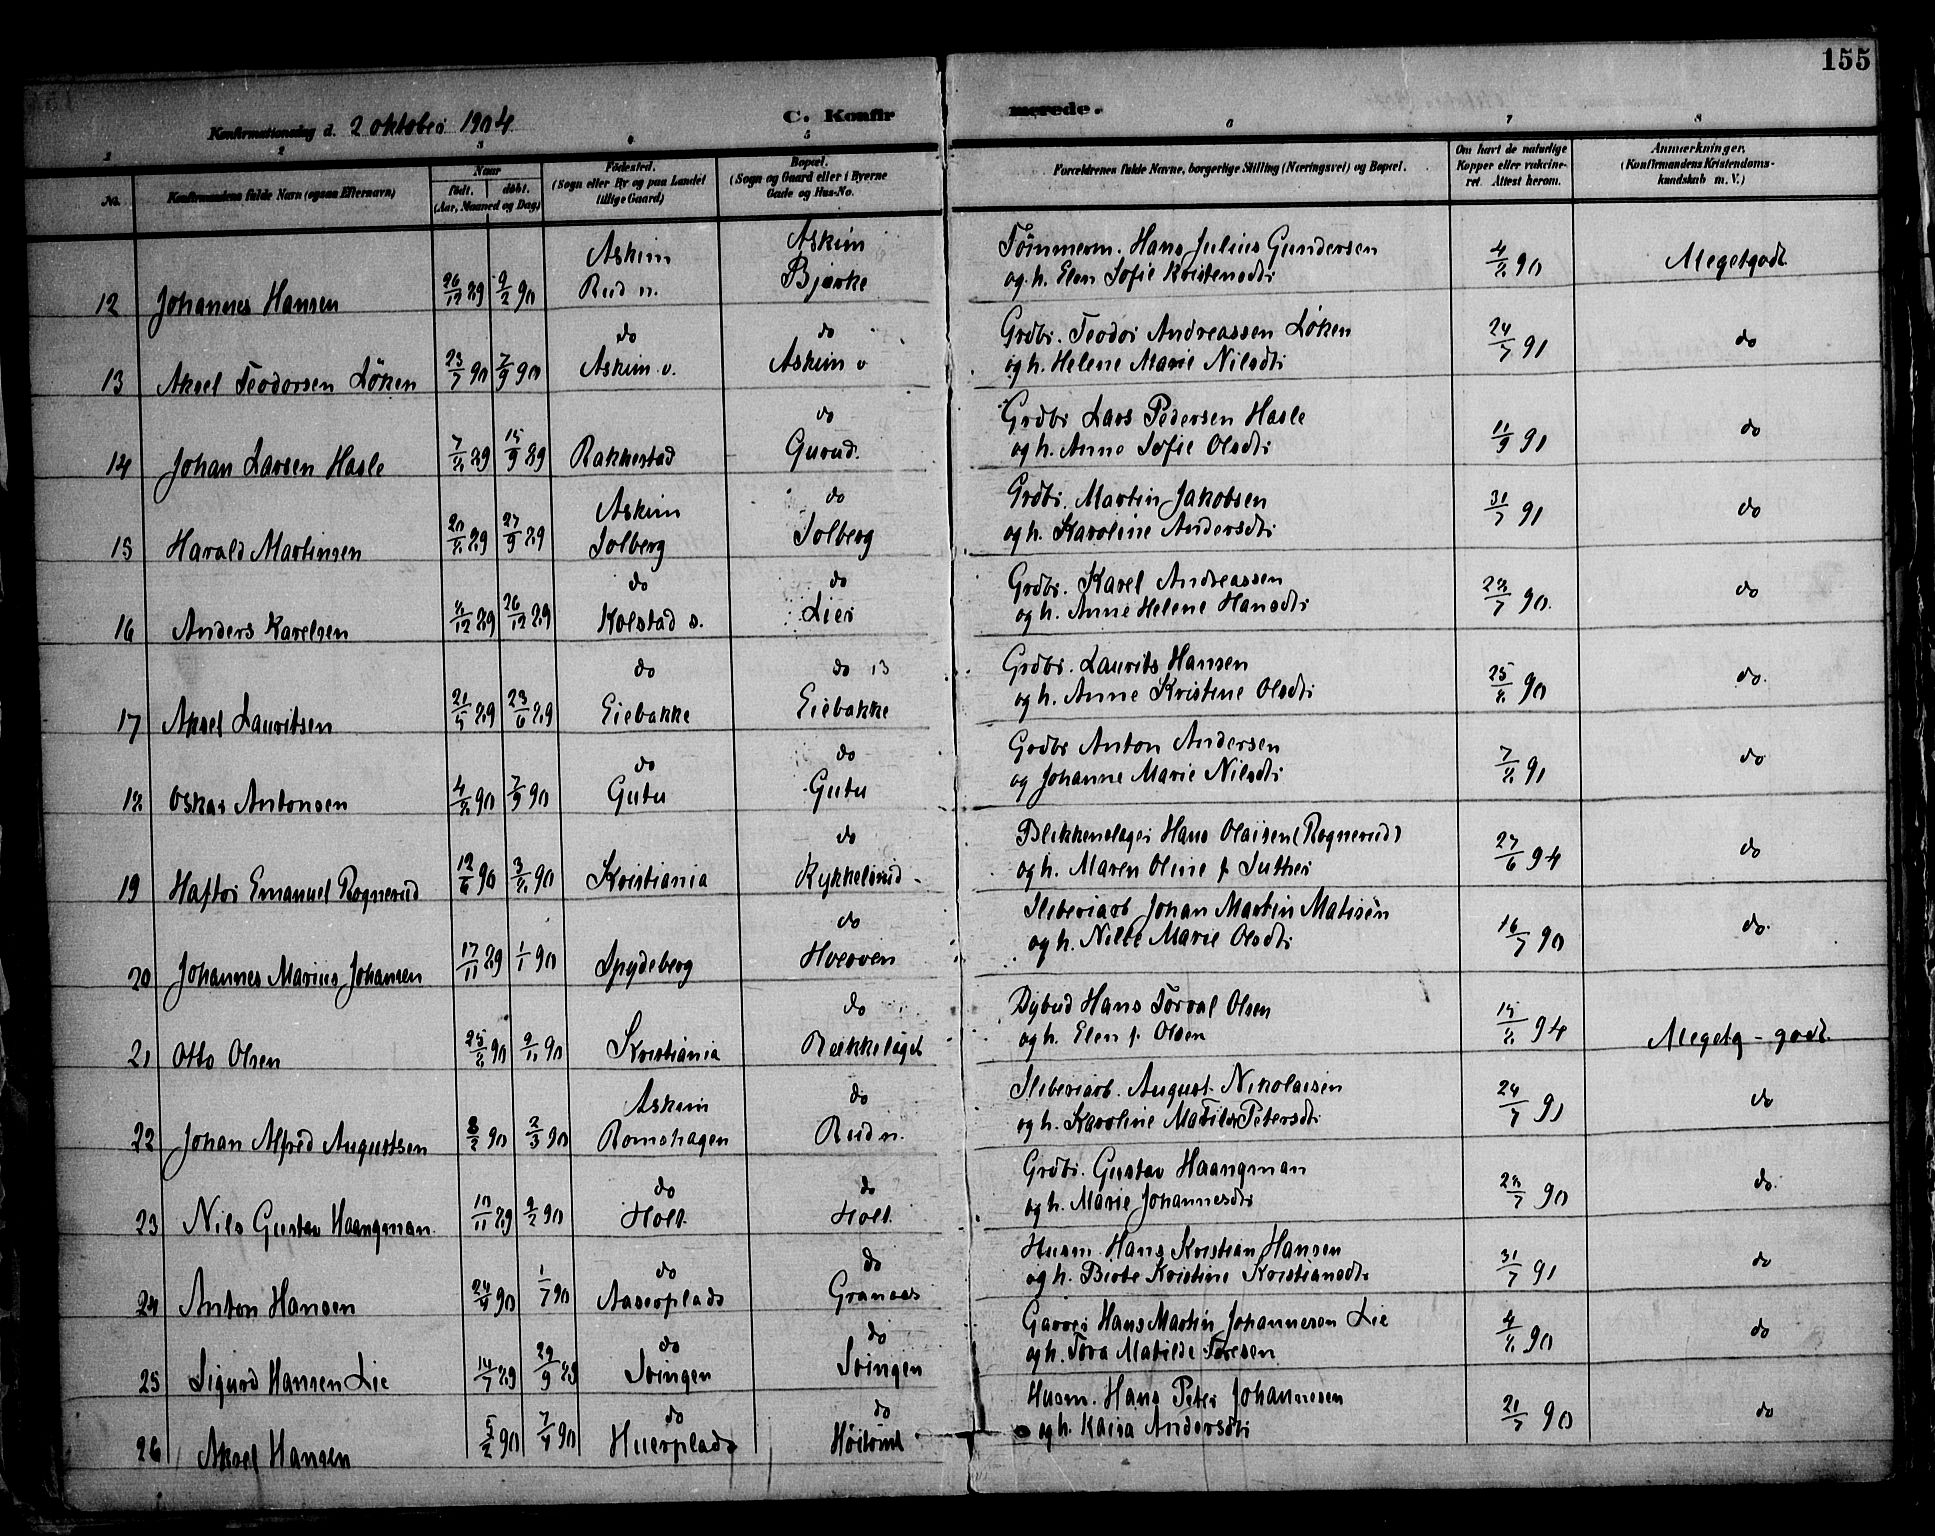 155
Konfirmationsdag d. 2 oktober 1904.
C. Konfirmerede.
1 2 3 4 5 6 7 8
No.
Konfirmandens fulde Navn (ogsaa Efternavn)
Naar
født. døbt.
(Aar, Maaned og Dag)
Fødested.
(Sogn eller By og paa Landet
tillige Gaard)
Bopæl.
(Sogn og Gaard eller i Byerne
Gade og Hus-No.
Forældrenes fulde Navne, borgerlige Stilling (Næringsvei) og Bopæl.
Om havt de naturlige
Kopper eller vakcine-
ret. Attest herom.
Anmærkninger.
(Konfirmandens Kristendoms-
kundskab m. V.)
Askim Askim Tømmerm. Hans Julius Gundersen
12 Johannes Hansen 26/12 89 9/2 90 Rud n. Bjørke og h. Elen Sofie Kristensdtr 4/8 90 Megetgodt
do do Grdbr. Teodor Andreassen Løken
13 Aksel Teodorsen Løken 23/7 90 7/9 90 Askim v. Askim v og h. Helene Marie Nilsdtr 24/7 91 do
do Grdbr Lars Pedersen Hasle
14 Johan Larsen Hasle 7/8 89 15/9 89 Rakkestad Gurud. og h. Anne Sofie Olsdtr 11/9 91 do
Askim do Grdbr. Martin Jakobsen
15 Harald Martinsen 20/8 89 27/9 89 Solberg Solberg og h. Karoline Andersdtr 31/7 91 do
do do Grdbr. Karel Andreassen
16 Anders Karelsen 8/12 89 26/12 89 Kolstad s. Lier og h. Anne Helene Hansdtr 28/7 90. do
do do 13 Grdbr. Laurits Hansen
17 Aksel Lauritsen 21/5 89 23/6 89 Eiebakke Eiebakke og h. Anne Kristine Olsdtr 25/8 90 do.
do do Grdbr Anton Andersen
18 Oskar Antonsen 4/8 90 7/9 90 Gutu Gutu og Johanne Marie Nilsdtr 7/8 91 do
do Blikkenslager Hans Olaisen (Rognerud)
19 Haftor Emanuel Rognerud 12/6 90 3/8 90 Kristiania Kykkelsrud og h. Maren Oline f. Suther 27/6 94 do
do Sliberiarb Johan Martin Matisen
20 Johannes Marius Johansen 17/11 89 1/1 90 Spydeberg Hverven og h. Nille Marie Olsdtr 16/7 90 do.
do Bybud Hans Torval Olsen
21 Otto Olsen 25/8 90 9/11 90 Kristiania og h. Elen f. Olsen 15/8 94 Megetg - godt.
Askim do Sliberiarb. August Nikolaisen
22 Johan Alfred Augustsen 8/2 90 2/3 90 Romshagen Rud n. og h. Karoline Matilde Petersdtr 24/7 91 do
do do Grdbr. Gustav Haangman
23 Nils Gustav Haangman 10/11 89 9/2 90 Holt Holt og h. Marie Johannesdtr 28/7 90 do.
do do Husm. Hans Kristian Hansen
24 Anton Hansen 24/4 90 1/7 90 Aaserplads Granaas og h. Birte Kristine Kristiansdtr 31/7 91 do
do do Garver Hans Martin Johannesen Lie
25 Sigurd Hansen Lie 14/7 89 29/9 89 Svingen Svingen og h. Tora Matilde Toresen 4/8 90 do
do do Husm. Hans Peter Johannesen
26 Aksel Hansen 5/2 90 7/4 90 Huerplads og h. Kaisa Andersdtr 21/7 90 do